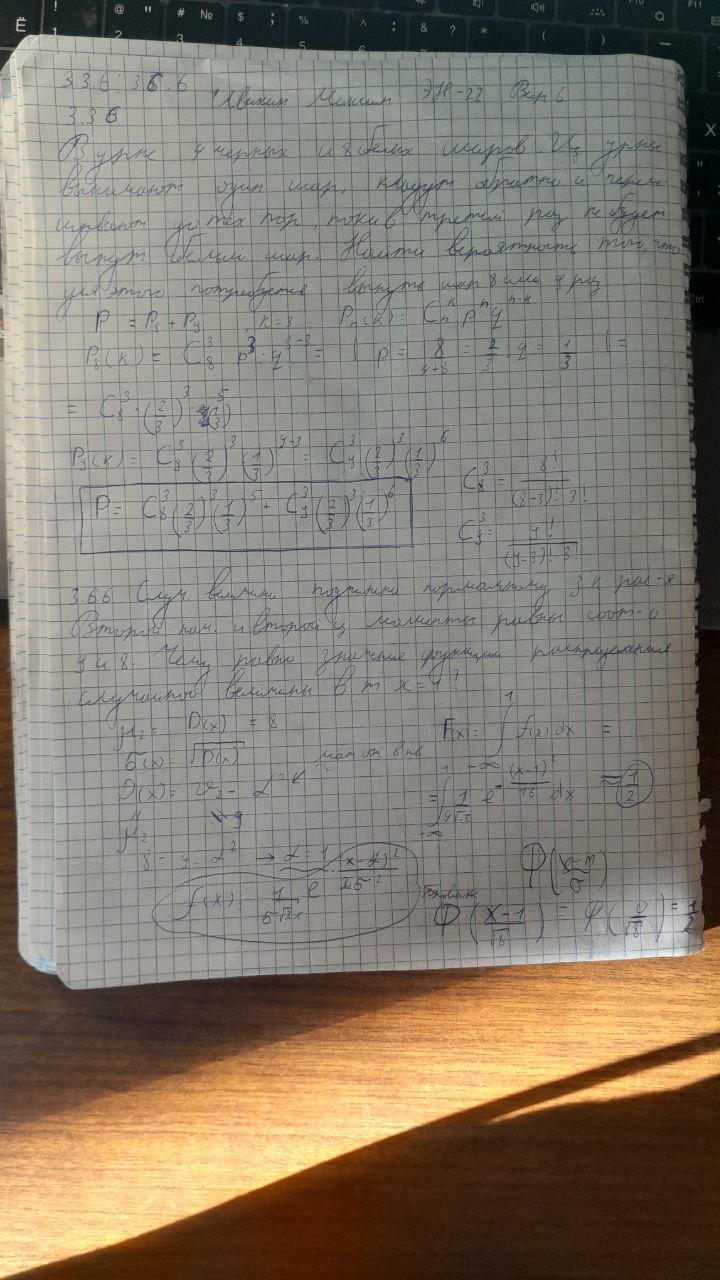 3.3.6; 3.6.6
Максим ЭН-22 Вар 6
3.3.6
В урне 4 черных и 8 белых шаров. Из урны
вынимают один шар, кладут обратно и переме-
шивают до тех пор, пока в третий раз не будет
вынут белый шар. Найти вероятность того, что
для этого потребуется вынуть шар 8 или 9 раз
P = P₈ + P₉, k=3 Pₙ(k) = Cₙᵏ pⁿ qⁿ⁻ᵏ
P₈(k) = C₈³ p³·q⁸⁻³ = | p = 8/(4+8) = 2/3, q = 1/3 | =
= C₈³·(2/3)³·(1/3)⁵
P₉(k) = C₉³ (2/3)³ (1/3)⁹⁻³ = C₉³ (2/3)³ (1/3)⁶
C₈³ = 8!/((8-3)! 3!)
P = C₈³ (2/3)³ (1/3)⁵ + C₉³ (2/3)³ (1/3)⁶
C₉³ = 9!/((9-3)! 3!)
3.6.6 Случ величина подчинена нормальному з-к рас-я
Второй нач. и второй ц моменты равны соот-о
9 и 8. Чему равно значение функции распределения
случайной величины в т x=1?
μ₂ = D(x) = 8
F(x) = ∫₋∞¹ f(x) dx =
σ(x) = √D(x)
D(x) = 𝜈₂ - α²
μ₂ 9
= ∫₋∞¹ 1/(4√π) e^(-(x-1)²/16) dx ≈ 1/2
8 = 9 - α² → α = 1
f(x) = 1/(σ√2π) e^(-(x-α)²/2σ²)
Ф((x-m)/σ)
Ф((x-1)/√8) = Ф(0/√8) = 1/2